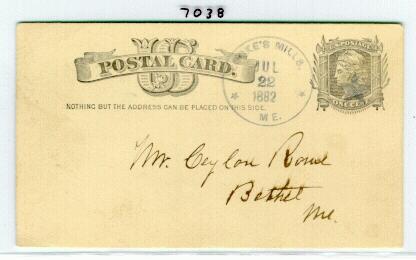 7038
US
POSTAL CARD.
NOTHING BUT THE ADDRESS CAN BE PLACED ON THIS SIDE.
KE'S MILLS,
JUL
22
1882
ME.
U.S. POSTAGE
ONE CENT
Mr. Ceylon Rowe
Bethel
Me.